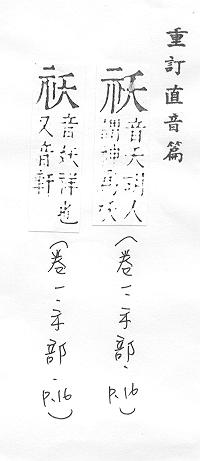 重訂直音篇
祆
音天胡人
謂神爲祆
(卷一·示部·P.16)
祅
音妖祥也
又音軒
(卷一·示部·P.16)